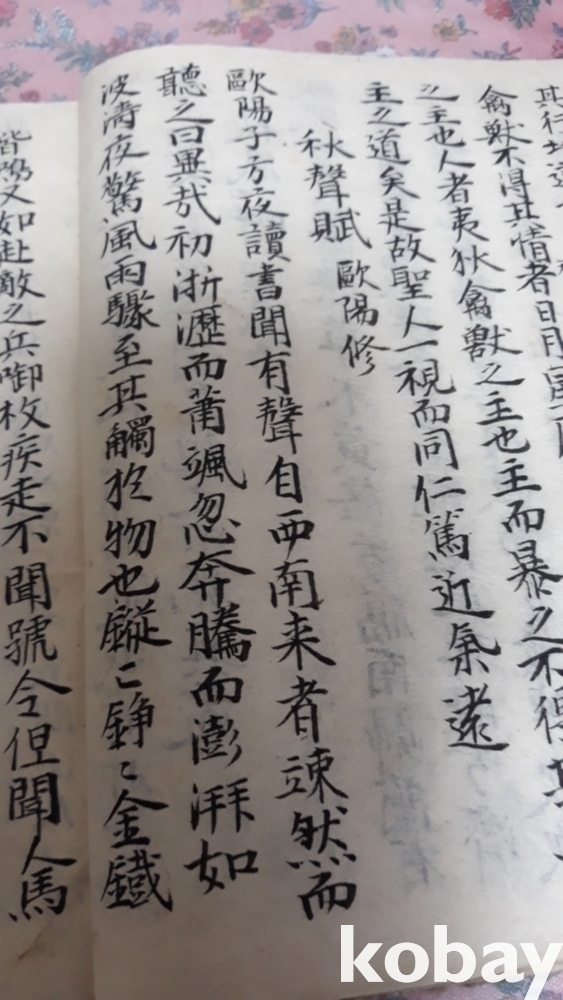 其行地
禽獸不得其情者日月
之主也人者夷狄禽獸之主也主而暴之不得其
主之道矣是故聖人一視而同仁篤近氣遠
秋聲賦 歐陽修
歐陽子方夜讀書聞有聲自西南来者竦然而
聽之曰異哉初淅瀝而蕭颯忽奔騰而澎湃如
波濤夜驚風雨驟至其觸於物也鏦〻錚〻金鐵
皆鳴又如赴敵之兵啣枚疾走不聞號令但聞人馬
kobay